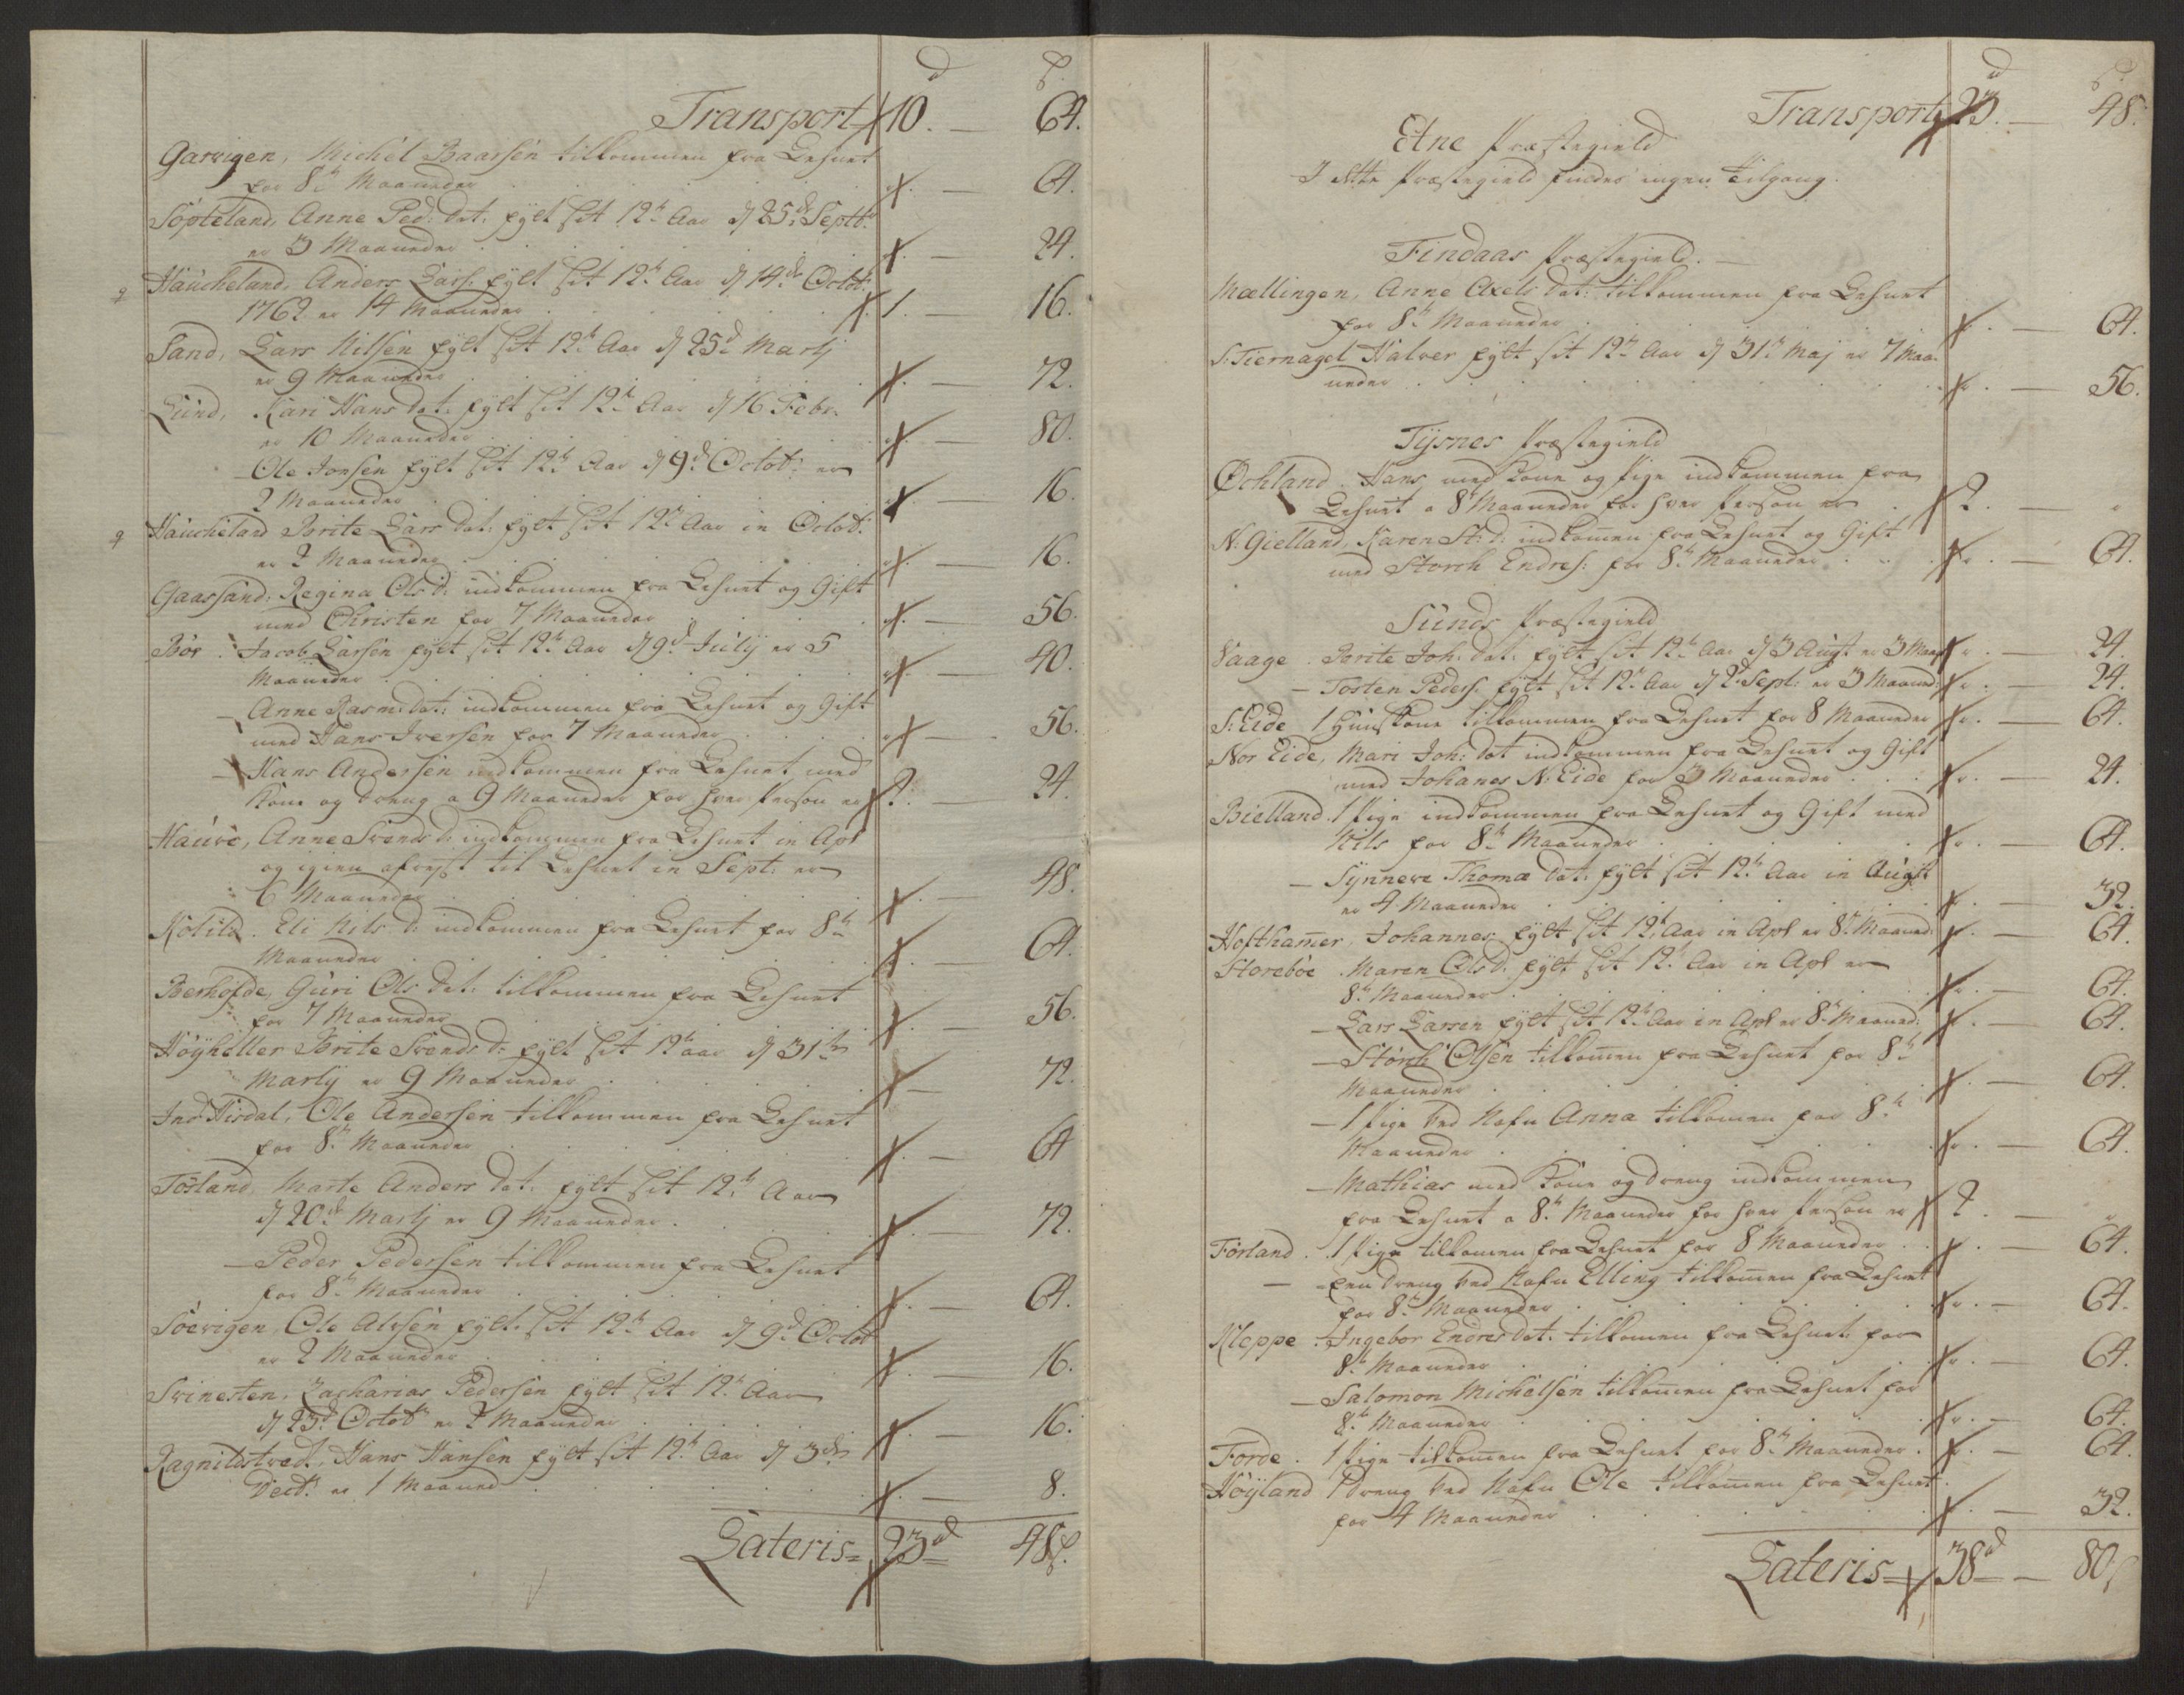 d ß
Transport 10. — 64.
Garvigen, Michel Baarsen tilkommen fra Lehnet
for 8te Maaneder . — 64.
Söpteland, Anne Ped: dat: fylt sit 12te Aar d 25de Septbr
er 3 Maaneder . — 24.
Haucheland, Anders Lars: fylt sit 12te Aar d 14de Octobr:
1762 er 14 Maaneder . 1. — 16.
Sand, Lars Nilsen fylt sit 12te Aar d 25d Martj
er 9 Maaneder . — 72.
Lund, Kari Hans dat: fylt sit 12te Aar d 16 Febr.
er 10 Maaneder . — 80.
— Ole Jonsen fylt sit 12te Aar d 9d Octobr: er
2 Maaneder . — 16.
Haucheland Brite Lars dat: fylt sit 12te Aar in Octobr:
er 2 Maaneder . — 16.
Gaassand: Regina Ols d: indkommen fra Lehnet og Gift
med Christen for 7 Maaneder . — 56.
Bör . Jacob Larsen fylt sit 12te Aar d 9d July er 5
Maaneder . — 40.
— Anne Rasm: dat: indkommen fra Lehnet og Gift
med Hans Iversen for 7 Maaneder . — 56.
— Hans Andersen indkommen fra Lehnet med
Kone og Dreng a 9 Maaneder for hver Person er 2. — 24.
Hauve, Anne Svends d: indkommen fra Lehnet in Apl
og igien afreyst til Lehnet in Sept: er
6 Maaneder . — 48.
Kolild. Eli Nils d: indkommen fra Lehnet for 8te
Maaneder . — 64.
Berhofde, Guri Ols dat: tilkommen fra Lehnet
for 7 Maaneder . — 56.
Höyheller Brite Svends d: fylt sit 12te aar d 31te
Martij er 9 Maaneder . — 72.
Ind Hisdal, Ole Andersen tilkommen fra Lehnet
for 8te Maaneder . — 64
Tosland, Marte Anders dat: fylt sit 12te Aar
d 20de Martj er 9 Maaneder . — 72.
— Peder Pedersen tilkommen fra Lehnet
for 8te Maaneder . — 64.
Soevigen, Ole Alvsen fylt sit 12te Aar d 9d Octobr
er 2 Maaneder . — 16.
Svinesten, Zacharias Pedersen fylt sit 12te Aar
d 23d Octobr er 2 Maaneder . — 16.
Ragnildstvedt, Hans Hansen fylt sit 12te Aar d 3de
Decbr: er 1 Maaned . — 8.
Lateris = 23d 48ß.
d ß
Transport 23. — 48.
Etne Præstegield
I dette Præstegield findes ingen Tilgang.
Findaas Præstegield. —
Mællingen, Anne Axels dat: tilkommen fra Lehnet
for 8te Maaneder . — 64.
S: Tiernagel Halver fylt sit 12te Aar d 31te Maj er 7 Maa-
neder . — 56.
Tysnes Præstegield
Ochland. Hans med Kone og Pige indkommen fra
Lehnet a 8te Maaneder for hver Person er 2. — "
N: Gielland, Karen St: d: indkomen fra Lehnet og Gift
med Storch Endres: for 8te Maaneder . — 64.
Sunds Præstegield
Vaage . Brite Joh: dat: fylt sit 12te Aar d 3 Augt er 3 Maan . — 24.
— Tosten Peders: fylt sit 12te Aar d 2d Sept: er 3 Maaned: . — 24.
S: Eide 1 Huuskone tilkommen fra Lehnet for 8 Maaneder . — 64.
Nor Eide, Mari Joh: dat indkommen fra Lehnet og Gift
med Johanes N: Eide for 3 Maaneder . — 24.
Bielland. 1 Pige indkommen fra Lehnet og Gift med
Nils for 8te Maaneder . — 64.
— Synneve Thomæ dat: fylt sit 12te Aar in Augst
er 4 Maaneder . — 32.
Hofthamer, Johannes fylt sit 12te Aar in Apl er 8te Maaned: . — 64.
Storeböe . Maren Ols d: fylt sit 12te Aar in Apl er
8te Maaneder . — 64.
— Lars Larsen fylt sit 12te Aar in Apl er 8te Maaned: . — 64.
— Störch Olsen tilkomen fra Lehnet for 8te
Maaneder . — 64.
— 1 Pige ved Nafn Anna tilkomen for 8te
Maaneder . — 64.
— Mathias med Kone og Dreng indkommen
fra Lehnet a 8te Maaneder for hver Person er 2. — "
Förland . 1 Pige tilkomen fra Lehnet for 8 Maaneder . — 64.
— een Dreng ved Nafn Elling tilkomen fra Lehnet
for 8te Maaneder . — 64.
Kleppe . Ingebor Endres dat: tilkomen fra Lehnet for
8te Maaneder . — 64.
— Salomon Michelsen tilkomen fra Lehnet for
8te Maaneder . — 64.
Förde . 1 Pige tilkomen fra Lehnet for 8te Maaneder . — 64.
Höyland 1 Dreng ved Nafn Ole tilkomen fra Lehnet
for 4 Maaneder . — 32.
Lateris = 38d — 80ß